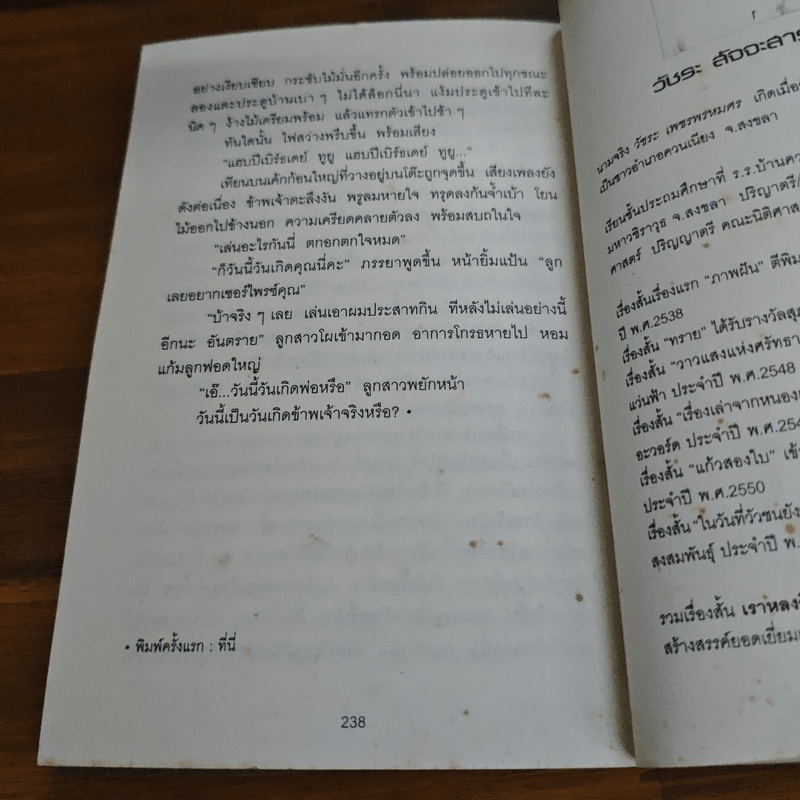 อย่างเงียบเชียบ กระชับไม้มั่นอีกครั้ง พร้อมปล่อยออกไปทุกขณะ
ลองแตะประตูบ้านเบา ๆ ไม่ได้ล็อกนี่นา แง้มประตูเข้าไปทีละ
นิด ๆ ง้างไม้เตรียมพร้อม แล้วแทรกตัวเข้าไปช้า ๆ
ทันใดนั้น ไฟสว่างพรึบขึ้น พร้อมเสียง
“แฮบปีเบิร์ธเดย์ ทูยู แฮบปีเบิร์ธเดย์ ทูยู...”
เทียนบนเค้กก้อนใหญ่ที่วางอยู่บนโต๊ะถูกจุดขึ้น เสียงเพลงยัง
ดังต่อเนื่อง ข้าพเจ้าตะลึงงัน พรูลมหายใจ ทรุดลงก้นจ้ำเบ้า โยน
ไม้ออกไปข้างนอก ความเครียดคลายตัวลง พร้อมสบถในใจ
“เล่นอะไรกันนี่ ตกอกตกใจหมด”
“ก็วันนี้วันเกิดคุณนี่คะ” ภรรยาพูดขึ้น หน้ายิ้มแป้น “ลูก
เลยอยากเซอร์ไพรซ์คุณ”
“บ้าจริง ๆ เลย เล่นเอาผมประสาทกิน ทีหลังไม่เล่นอย่างนี้
อีกนะ อันตราย” ลูกสาวโผเข้ามากอด อาการโกรธหายไป หอม
แก้มลูกฟอดใหญ่
“เอ๊...วันนี้วันเกิดพ่อหรือ” ลูกสาวพยักหน้า
วันนี้เป็นวันเกิดข้าพเจ้าจริงหรือ? •
• พิมพ์ครั้งแรก : ที่นี่
238
วัชระ สัจจะสาร
นามจริง วัชระ เพชรพรหมศร เกิดเมื่อ
เป็นชาวอำเภอควนเนียง จ.สงขลา
เรียนชั้นประถมศึกษาที่ ร.ร.บ้านคว
มหาวชิราวุธ จ.สงขลา ปริญาตรี/
ศาสตร์ ปริญญาตรี คณะนิติศาส
เรื่องสั้นเรื่องแรก “ภาพฝัน” ตีพิม
ปี พ.ศ.2538
เรื่องสั้น “ทราย” ได้รับรางวัลสุภ
เรื่องสั้น “วาวแสงแห่งศรัทธา
แว่นฟ้า ประจำปี พ.ศ.2548
เรื่องสั้น “เรื่องเล่าจากหนองเ
อะวอร์ด ประจำปี พ.ศ.254
เรื่องสั้น “แก้วสองใบ” เข้า
ประจำปี พ.ศ.2550
เรื่องสั้น “ในวันที่วัวชนยัง
สงสมพันธุ์ ประจำปี พ.
รวมเรื่องสั้น เราหลง
สร้างสรรค์ยอดเยี่ยม